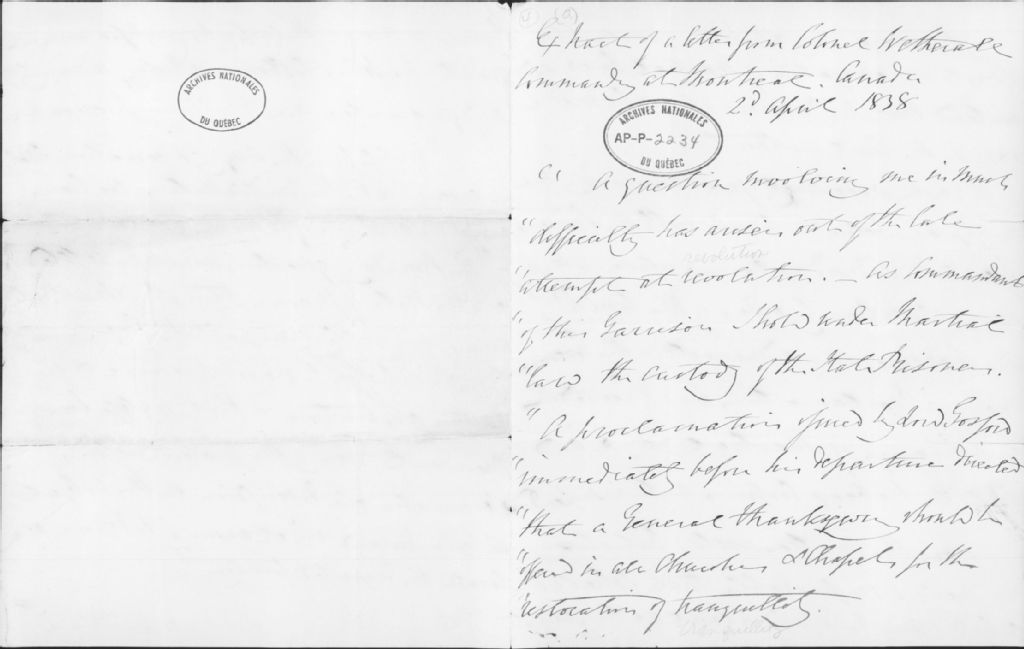 ARCHIVES NATIONALES
DU QUÉBEC
Extract of a letter from Colonel Wetherall
Commandg at Montreal. Canada
2d April 1838
ARCHIVES NATIONALES
AP-P-2234
DU QUÉBEC
"A question involving me in much
"difficulty has arisen out of the late
revolution
"attempt at revolution. — As Commandant
"of this Garrison I hold under Martial
"law the custody of the State Prisoners.
"A proclamation issued by Lord Gosford
"immediately before his departure directed
"that a General thanksgiving should be
"offered in all Churches & Chapels for the
"restoration of tranquillity.
tranquillity